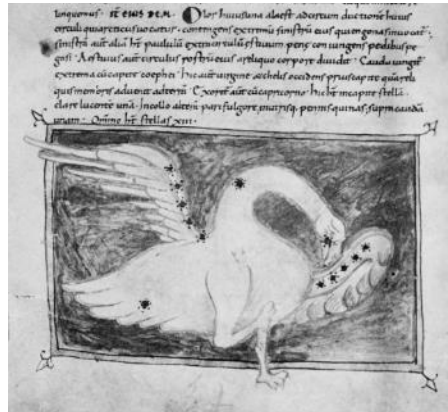 linquemus. ITĒ EIUS DEM. Olor huius una ala est ad circum ductione huius
circuli qui arcticus vocatur. contingens extremū sinistri eius quem gonasin vocat.
sinistrā aut alā hēt paululū extrem pene coniungens pedibus pe
gasi. Aestivus aut circulus rostrū eius a reliquo corpore dividit. Cauda iungit
extrema cū capite cephei. hic aut virgine et chelis occidens prius capite quā reli
quis membris advenit ad terrā. Exoret aut cū capricorno. hic hēt in capite stellā
clare lucente unā. In collo alterā pari fulgore. In utrisq. pennis quinas, supra caudā
unam. Omnino hēt stellas XIII.